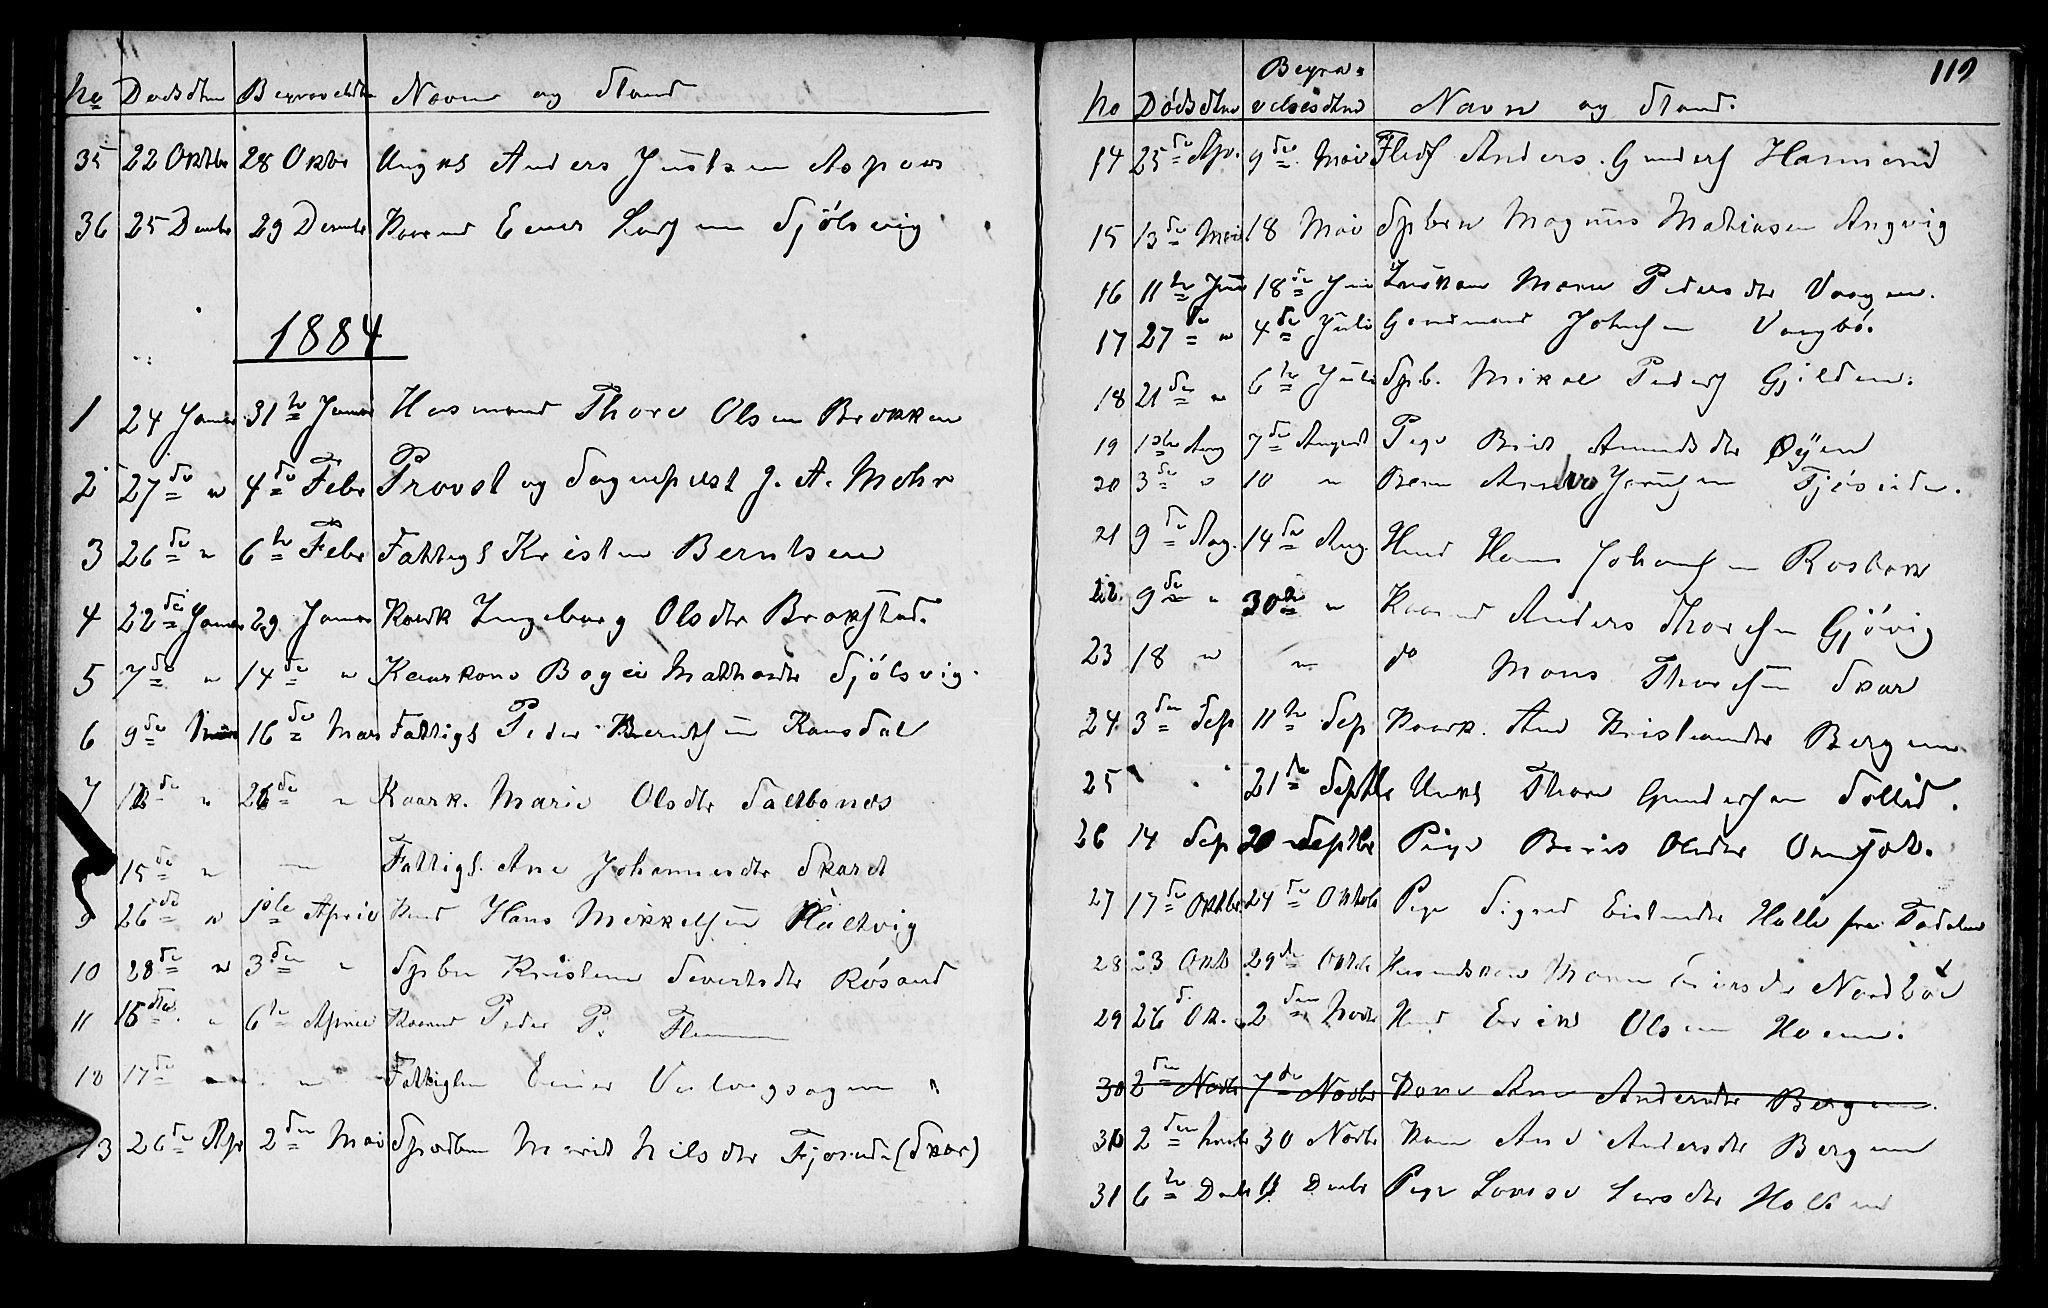 No Dødsdtm Begravelsdtm Navn og Stand
35 22 Oktbr 28 Oktbr Ungks Anders Justsen Aspaas
36 25 Dembr 29 Dembr Kaarmd Einer Larssen Sjølsvig
1884
1 24 Januar 31te Januar Husmand Thore Olsen Brokken
2 27de " 4de Febr Provst og Sogneprest J. A. Mohr
3 26de " 6te Febr Fattigl Kristen Berntsen
4 22de Januar 29 Januar Kaark Ingeborg Olsdtr Brokstad.
5 7de " 14de " Kaarkone Bogei Mathiasdtr Sjølsvig.
6 9de Mars 16de Mars Fattigl Peder Berntsen Ransdal
7 12 de " 26de " Kaark. Marie Olsdtr Saltbones
8 15de " — Fattigl. Ane Johannesdtr Skaret
9 26de " 1ste April Kmd Hans Mikkelsen Hultvig
10 28de " 3die " Spbn Kristen Severtsdtr Røsand
11 15de " 6te April Kaarmd Peder P. Flemmen
12 17de " " Fattiglm Einer
13 26de Apr 2den Mai Spædbn Marit Nilsdtr Fjøseide (Skar)
119
No Dødsdtm Begravelsesdtm Navn og Stand.
14 25de Apr. 9de Mai Anders Gundersen Hammand
15 13de Mai 18 Mai Spbrn Magnus Mathiasen Angvig
16 11te Jun 18de Jun Maria Pedersdtr Vaagen.
17 27de " 4de Juli Gaardmand Johnsen Vaagbø.
18 21de " 6te Juli Spb. Mikal Peders Gjilden.
19 1ste Aug 7de August Pige Brit Amundsdtr Øyen
20 3de " 10 " Barn Anders Jensen Fjøseide.
21 9de Aug. 14de Aug. Kmd Hans Johansen Roaldset
22. 9de " 30de " Kaarmd Anders Thoresen Gjøvig
23 18 " " do Mons Thoresen Skar
24 3die Sep 11te Sep Kaark. And Kristiansdtr Bergem
25 21de Septbr Unks Thore Gundersen Sollid.
26 14 Sep 20 Septbr Pige Beret Olsdtr
27 17de Oktbr. 24de Oktob Pige Sigrid Eistensdtr Halle fra Todalen
28 23 Okt 29de Oktb Husmdskone Maren Eriksdtr Nordbø
29 26 d. Ok. 2den Novbr Kmd Erik Olsen Hoem.
30 2den Novbr 7de Novbr Kone Ane Andersdtr Bergem.
30 2den Novbr 30 Novbr Kone Ane Andersdtr Bergem
31 6te Decbr 11 Decbr Pige Lovise Larsdtr Holten